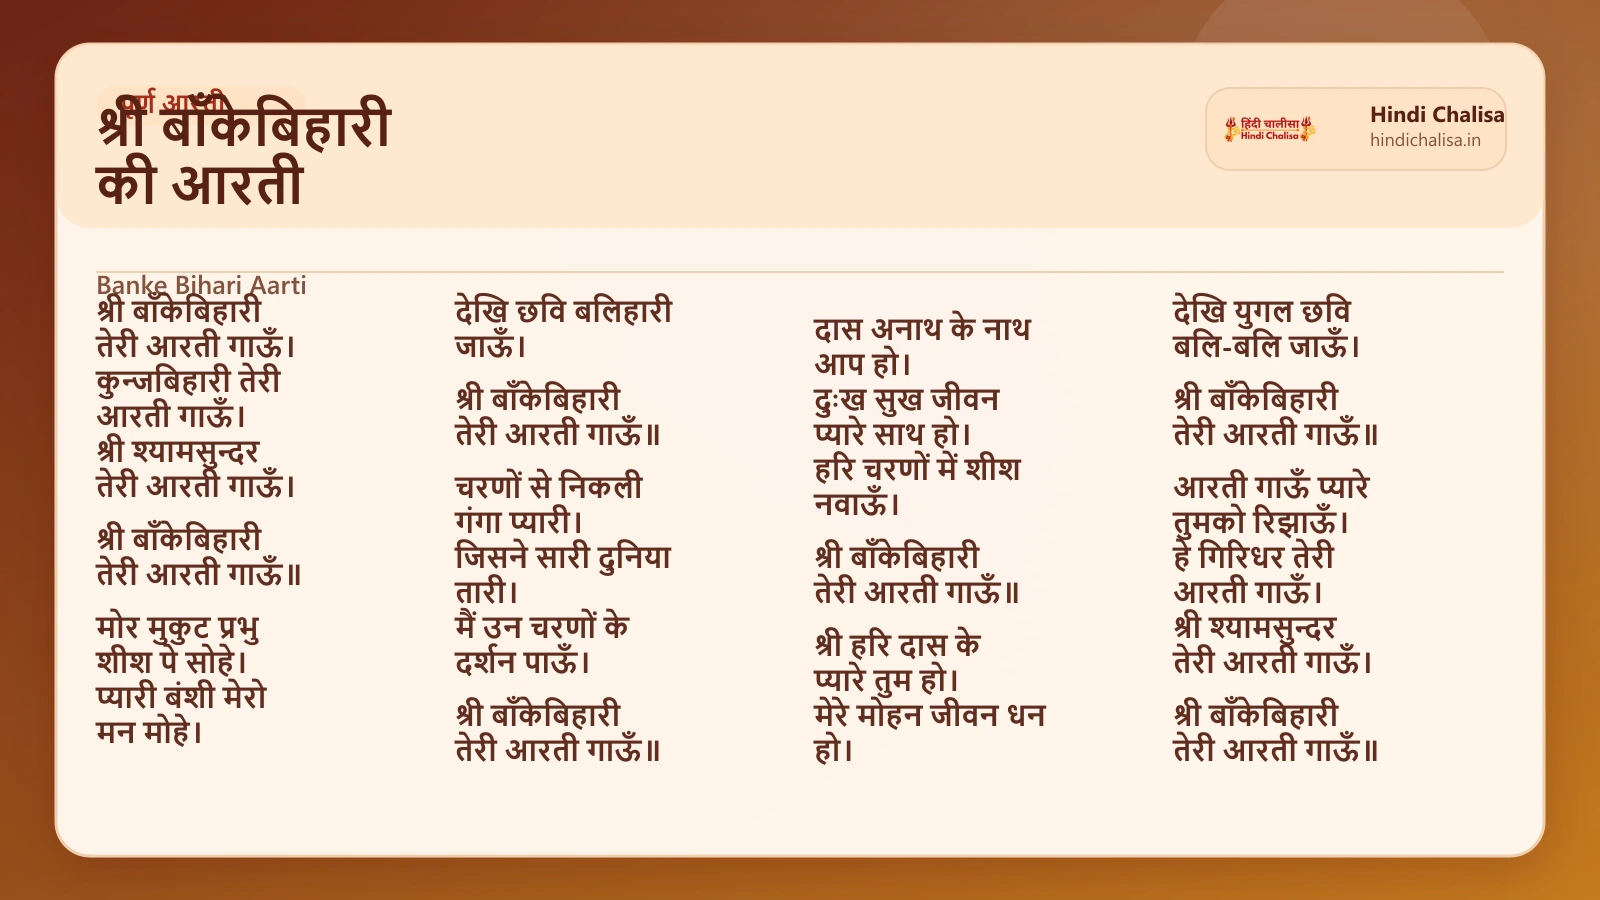 पूर्ण आरती
श्री बाँकेबिहारी
की आरती
हिंदी चालीसा
Hindi Chalisa
Hindi Chalisa
hindichalisa.in
Banke Bihari Aarti
श्री बाँकेबिहारी
तेरी आरती गाऊँ।
कुन्जबिहारी तेरी
आरती गाऊँ।
श्री श्यामसुन्दर
तेरी आरती गाऊँ।
श्री बाँकेबिहारी
तेरी आरती गाऊँ॥
मोर मुकुट प्रभु
शीश पे सोहे।
प्यारी बंशी मेरो
मन मोहे।
देखि छवि बलिहारी
जाऊँ।
श्री बाँकेबिहारी
तेरी आरती गाऊँ॥
चरणों से निकली
गंगा प्यारी।
जिसने सारी दुनिया
तारी।
मैं उन चरणों के
दर्शन पाऊँ।
श्री बाँकेबिहारी
तेरी आरती गाऊँ॥
दास अनाथ के नाथ
आप हो।
दुःख सुख जीवन
प्यारे साथ हो।
हरि चरणों में शीश
नवाऊँ।
श्री बाँकेबिहारी
तेरी आरती गाऊँ॥
श्री हरि दास के
प्यारे तुम हो।
मेरे मोहन जीवन धन
हो।
देखि युगल छवि
बलि-बलि जाऊँ।
श्री बाँकेबिहारी
तेरी आरती गाऊँ॥
आरती गाऊँ प्यारे
तुमको रिझाऊँ।
हे गिरिधर तेरी
आरती गाऊँ।
श्री श्यामसुन्दर
तेरी आरती गाऊँ।
श्री बाँकेबिहारी
तेरी आरती गाऊँ॥